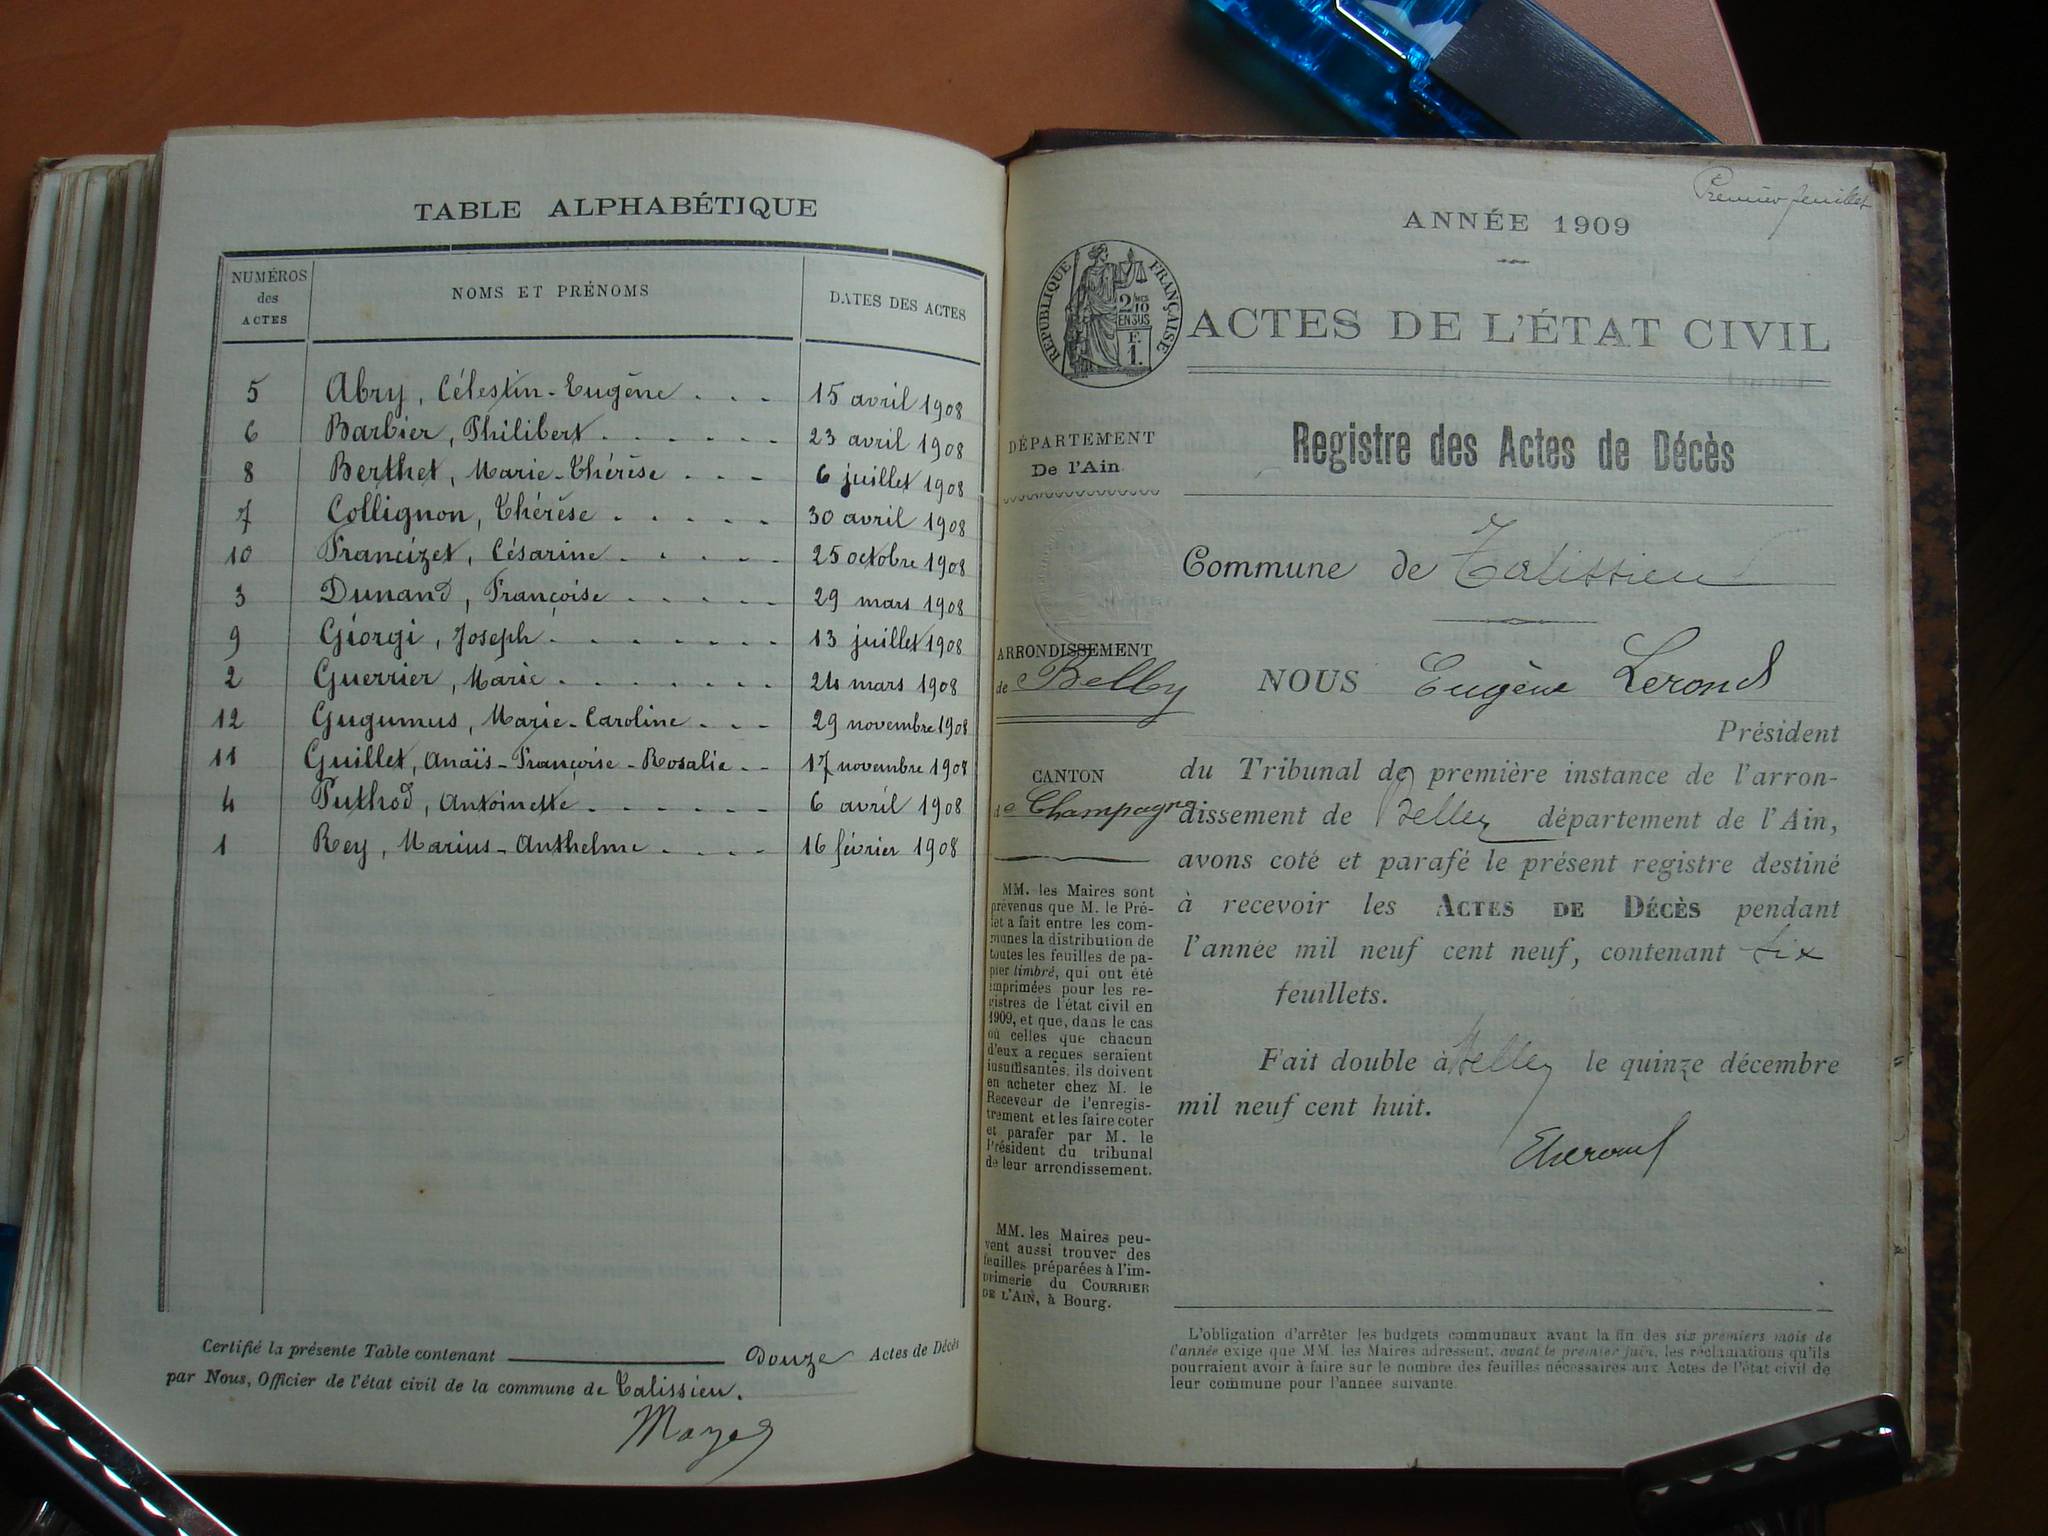 TABLE ALPHABÉTIQUE
NUMÉROS des ACTES NOMS ET PRÉNOMS DATES DES ACTES
5 Abry, Célestin-Eugène . . . 15 avril 1908
6 Barbier, Philibert . . . . . . 23 avril 1908
8 Berthet, Marie-Thérèse . . . 6 juillet 1908
7 Collignon, Thérèse . . . . . 30 avril 1908
10 Francizet, Césarine . . . . 25 octobre 1908
3 Dunand, Françoise . . . . . 29 mars 1908
9 Giorgi, Joseph . . . . . . . 13 juillet 1908
2 Guerrier, Marie . . . . . . . 24 mars 1908
12 Gugumus, Marie-Caroline . . . 29 novembre 1908
11 Guillet, Anaïs-Françoise-Rosalie . . 17 novembre 1908
4 Puthod, Antoinette . . . . . . 6 avril 1908
1 Rey, Marius-Anthelme . . . . 16 février 1908
Certifié la présente Table contenant douze Actes de Décès
par Nous, Officier de l'état civil de la commune de Talissieu.
Premier feuillet
ANNÉE 1909
RÉPUBLIQUE FRANÇAISE
2/10
EN SUS
F.
1.
ACTES DE L'ÉTAT CIVIL
DÉPARTEMENT
De l'Ain
ARRONDISSEMENT
de Belley
CANTON
de Champagne
MM. les Maires sont
prévenus que M. le Pré-
fet a fait entre les com-
munes la distribution de
toutes les feuilles de pa-
pier timbré, qui ont été
imprimées pour les re-
gistres de l'état civil en
1909, et que, dans le cas
où celles que chacun
d'eux a reçues seraient
insuffisantes, ils doivent
en acheter chez M. le
Receveur de l'enregis-
trement et les faire coter
et parafer par M. le
Président du tribunal
de leur arrondissement.
MM. les Maires peu-
vent aussi trouver des
feuilles préparées à l'im-
primerie du COURRIER
DE L'AIN, à Bourg.
Registre des Actes de Décès
Commune de Talissieu
NOUS Eugène Lerond
Président
du Tribunal de première instance de l'arron-
dissement de Belley département de l'Ain,
avons coté et parafé le présent registre destiné
à recevoir les ACTES DE DÉCÈS pendant
l'année mil neuf cent neuf, contenant six
feuillets.
Fait double à Belley le quinze décembre
mil neuf cent huit.
L'obligation d'arrêter les budgets communaux avant la fin des six premiers mois de
l'année exige que MM. les Maires adressent, avant le premier juin, les réclamations qu'ils
pourraient avoir à faire sur le nombre des feuilles nécessaires aux Actes de l'état civil de
leur commune pour l'année suivante.